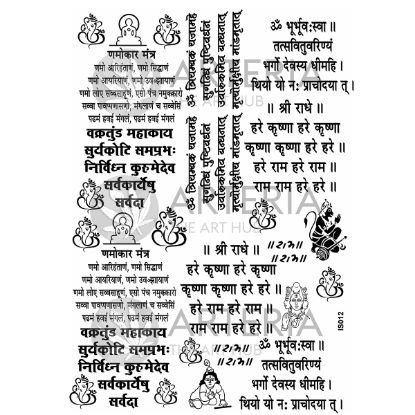 णमोकार मंत्र
णमो आरिहंताणं, णमो सिद्धाणं
णमो आयरियाणं, णमो उवज्झायाणं
णमो लोए सव्वसाहूणं, एसो पंच णमुक्कारो
सव्वा पावप्पणासणो, मंगलाणं च सव्वेसिं
पढमं हवई मंगलं, पढमं हवई मंगलं
वक्रतुंड महाकाय
सुर्यकोटि समप्रभः
निर्विध्न कुरुमेदेव
सर्वकार्येषु
सर्वदा
ॐ त्रियम्बकं यजामहे
सुगन्धिं पुष्टिवर्धनं
उर्वारुकमिव बन्धनात्
मृत्योर्मुक्षीय मांमृतात्
ॐ त्रियम्बकं यजामहे
सुगन्धिं पुष्टिवर्धनं
उर्वारुकमिव बन्धनात्
मृत्योर्मुक्षीय मांमृतात्
ॐ भूर्भूवःस्वः॥
तत्सवितुवरिण्यं
भर्गो देवस्य धीमहि।
थियो यो नः प्राचोदयात्।
॥ श्री राधे ॥
हरे कृष्णा हरे कृष्णा
कृष्णा कृष्णा हरे हरे
हरे राम हरे राम॥
राम राम हरे हरे॥
ARTERIA
THE ART HUB
णमोकार मंत्र
णमो आरिहंताणं, णमो सिद्धाणं
णमो आयरियाणं, णमो उवज्झायाणं
णमो लोए सव्वसाहूणं, एसो पंच णमुक्कारो
सव्वा पावप्पणासणो, मंगलाणं च सव्वेसिं
पढमं हवई मंगलं, पढमं हवई मंगलं
वक्रतुंड महाकाय
सुर्यकोटि समप्रभः
निर्विध्न कुरुमेदेव
सर्वकार्येषु
सर्वदा
॥ श्री राधे ॥
हरे कृष्णा हरे कृष्णा
कृष्णा कृष्णा हरे हरे
हरे राम हरे राम॥
राम राम हरे हरे॥
॥राम॥
॥राम॥
॥राम॥
॥राम॥
IS012
ॐ भूर्भूवःस्वः॥
तत्सवितुवरिण्यं
भर्गो देवस्य धीमहि।
थियो यो नः प्राचोदयात्।